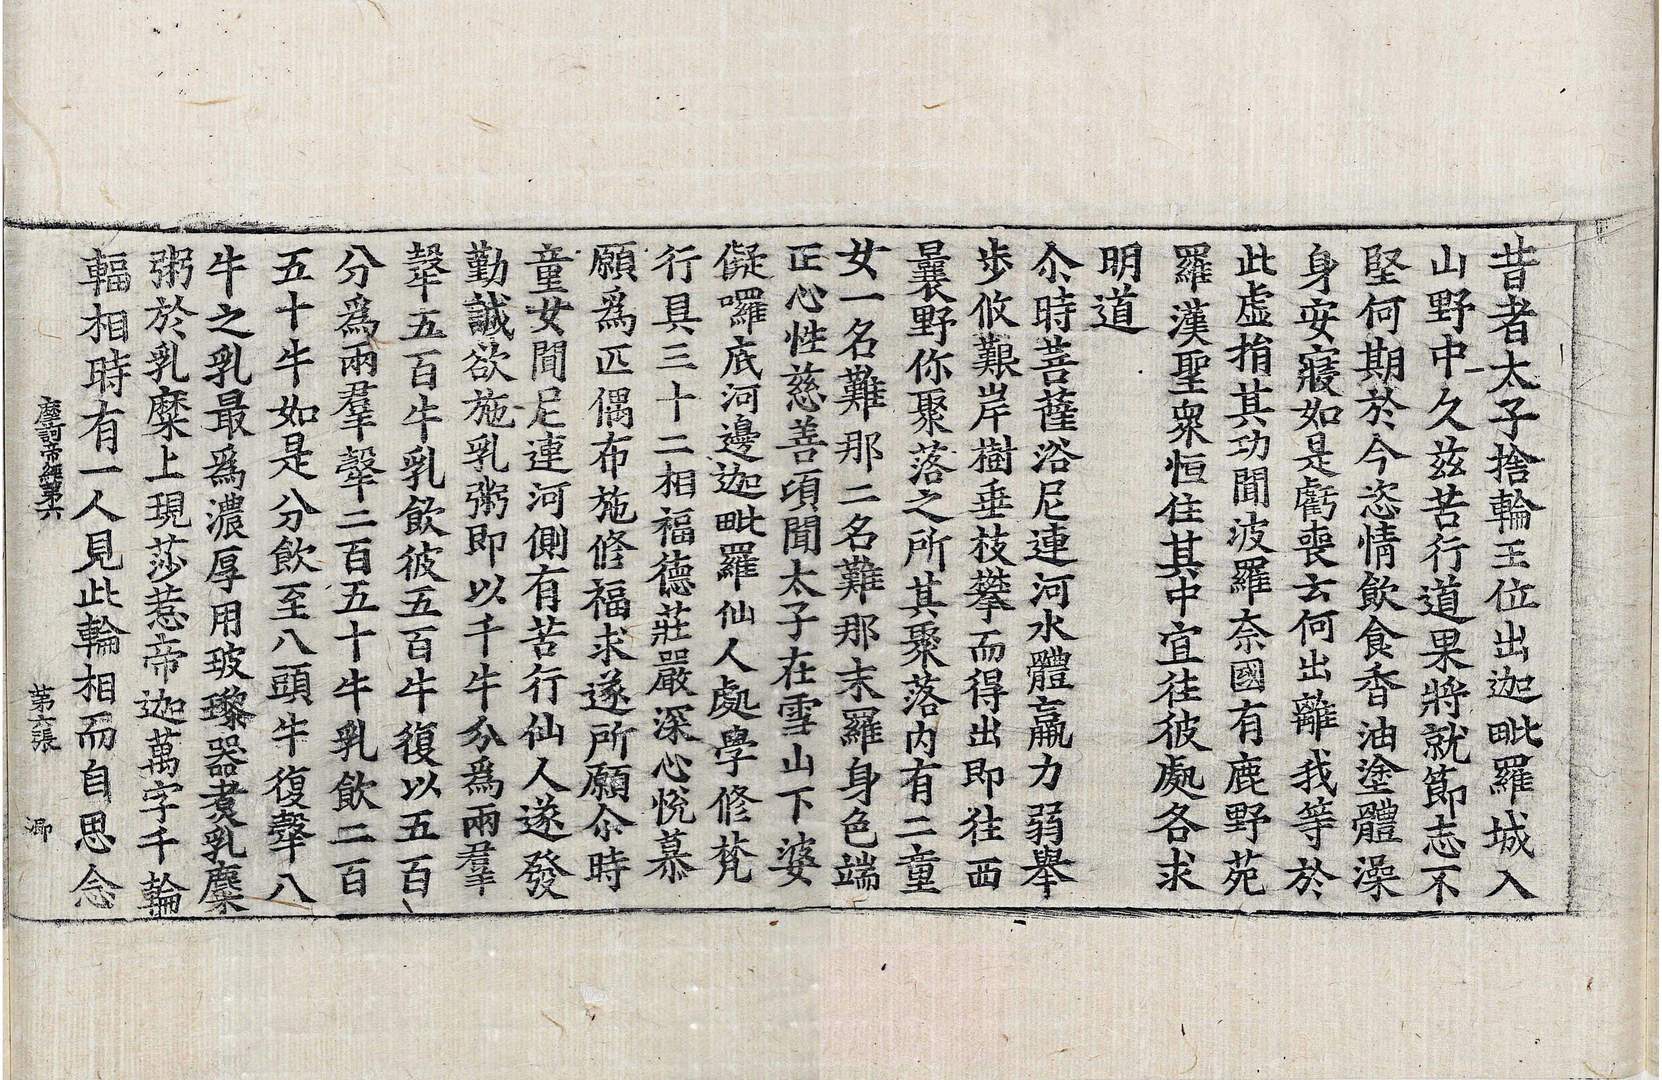 昔者太子捨輪王位出迦毗羅城入
山野中久兹苦行道果將就節志不
堅何期於今恣情飲食香油塗體澡
身安寢如是虧喪去何出離我等於
此虚捐其功聞波羅奈國有鹿野苑
羅漢聖衆恒住其中宜往彼處各求
明道
尒時菩薩浴尼連河水體羸力弱舉
步攸艱岸樹垂枝攀而得出即往西
曩野你聚落之所其聚落内有二童
女一名難那二名難那末羅身色端
正心性慈善頃聞太子在雪山下婆
儗囉底河邊迦毗羅仙人處學修梵
行具三十二相福德莊嚴深心悅慕
願爲匹偶布施修福求遂所願尒時
童女聞尼連河側有苦行仙人遂發
勤誠欲施乳粥即以千牛分爲兩羣
㲉五百牛乳飲彼五百牛復以五百
分爲兩羣㲉二百五十牛乳飲二百
五十牛如是分飲至八頭牛復㲉八
牛之乳最爲濃厚用玻瓈器煑乳糜
粥於乳糜上現莎惹帝迦萬字千輪
輻相時有一人見此輪相而自思念
摩訶帝經第六 第六張 𣸣